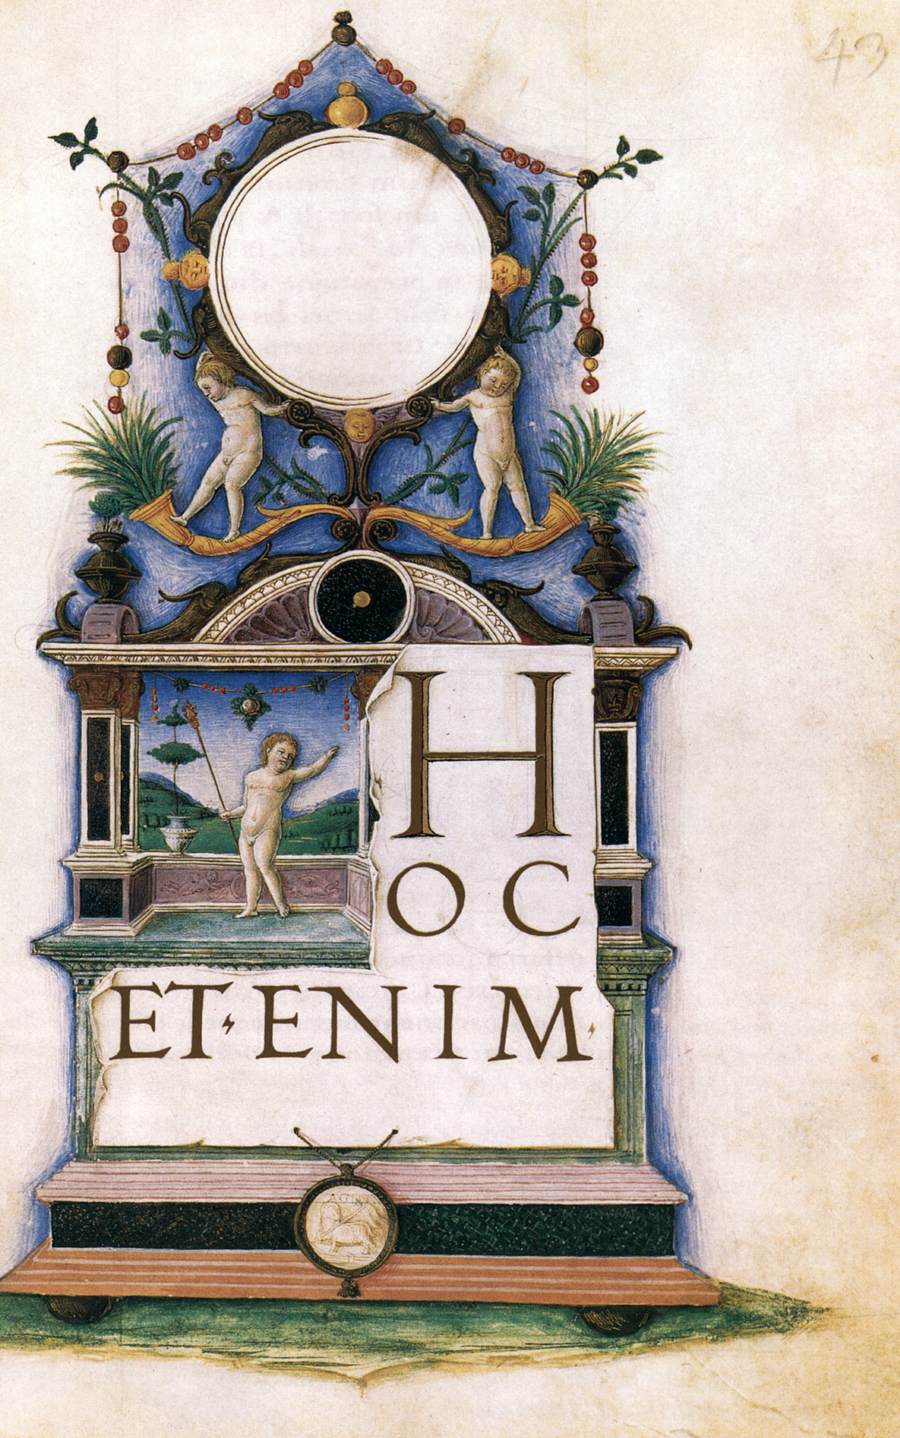 43
H
OC
ET·ENIM·